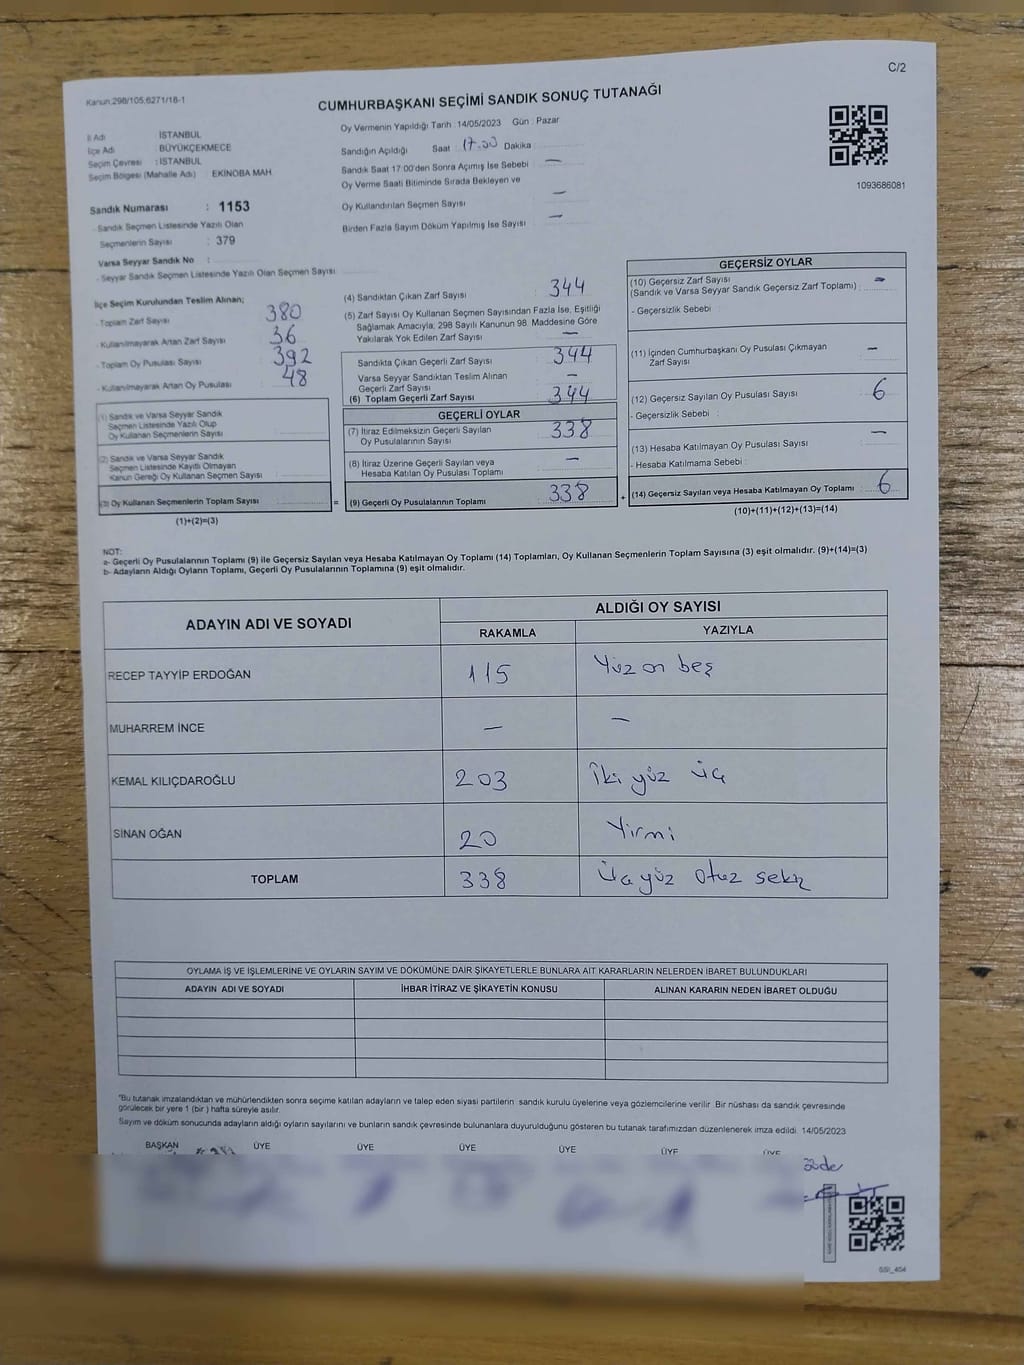 C/2
Kanun:298/105;6271/18-1
CUMHURBAŞKANI SEÇİMİ SANDIK SONUÇ TUTANAĞI
İl Adı İSTANBUL
İlçe Adı BÜYÜKÇEKMECE
Seçim Çevresi : İSTANBUL
Seçim Bölgesi (Mahalle Adı) : EKİNOBA MAH.
Oy Vermenin Yapıldığı Tarih :14/05/2023 Gün : Pazar
Sandığın Açıldığı Saat 17.00 Dakika
Sandık Saat 17:00'den Sonra Açılmış İse Sebebi —
Oy Verme Saati Bitiminde Sırada Bekleyen ve
Oy Kullandırılan Seçmen Sayısı —
Birden Fazla Sayım Döküm Yapılmış İse Sayısı —
1093686081
Sandık Numarası : 1153
- Sandık Seçmen Listesinde Yazılı Olan
Seçmenlerin Sayısı : 379
Varsa Seyyar Sandık No :
- Seyyar Sandık Seçmen Listesinde Yazılı Olan Seçmen Sayısı
İlçe Seçim Kurulundan Teslim Alınan;
- Toplam Zarf Sayısı 380
- Kullanılmayarak Artan Zarf Sayısı 36
- Toplam Oy Pusulası Sayısı 392
- Kullanılmayarak Artan Oy Pusulası 48
(1) Sandık ve Varsa Seyyar Sandık
Seçmen Listesinde Yazılı Olup
Oy Kullanan Seçmenlerin Sayısı
(2) Sandık ve Varsa Seyyar Sandık
Seçmen Listesinde Kayıtlı Olmayan
Kanun Gereği Oy Kullanan Seçmen Sayısı
(3) Oy Kullanan Seçmenlerin Toplam Sayısı
(1)+(2)=(3)
(4) Sandıktan Çıkan Zarf Sayısı 344
(5) Zarf Sayısı Oy Kullanan Seçmen Sayısından Fazla İse, Eşitliği
Sağlamak Amacıyla; 298 Sayılı Kanunun 98. Maddesine Göre
Yakılarak Yok Edilen Zarf Sayısı —
Sandıkta Çıkan Geçerli Zarf Sayısı 344
Varsa Seyyar Sandıktan Teslim Alınan
Geçerli Zarf Sayısı —
(6) Toplam Geçerli Zarf Sayısı 344
GEÇERLİ OYLAR
(7) İtiraz Edilmeksizin Geçerli Sayılan
Oy Pusulalarının Sayısı 338
(8) İtiraz Üzerine Geçerli Sayılan veya
Hesaba Katılan Oy Pusulası Toplamı —
= (9) Geçerli Oy Pusulalarının Toplamı 338 +
GEÇERSİZ OYLAR
(10) Geçersiz Zarf Sayısı
(Sandık ve Varsa Seyyar Sandık Geçersiz Zarf Toplamı) : —
- Geçersizlik Sebebi :
(11) İçinden Cumhurbaşkanı Oy Pusulası Çıkmayan
Zarf Sayısı —
(12) Geçersiz Sayılan Oy Pusulası Sayısı 6
- Geçersizlik Sebebi :
(13) Hesaba Katılmayan Oy Pusulası Sayısı —
- Hesaba Katılmama Sebebi :
(14) Geçersiz Sayılan veya Hesaba Katılmayan Oy Toplamı 6
(10)+(11)+(12)+(13)=(14)
NOT:
a- Geçerli Oy Pusulalarının Toplamı (9) ile Geçersiz Sayılan veya Hesaba Katılmayan Oy Toplamı (14) Toplamları, Oy Kullanan Seçmenlerin Toplam Sayısına (3) eşit olmalıdır. (9)+(14)=(3)
b- Adayların Aldığı Oyların Toplamı, Geçerli Oy Pusulalarının Toplamına (9) eşit olmalıdır.
ADAYIN ADI VE SOYADI ALDIĞI OY SAYISI
RAKAMLA YAZIYLA
RECEP TAYYİP ERDOĞAN 115 Yüz on beş
MUHARREM İNCE — —
KEMAL KILIÇDAROĞLU 203 İki yüz üç
SİNAN OĞAN 20 Yirmi
TOPLAM 338 Üç yüz otuz sekiz
OYLAMA İŞ VE İŞLEMLERİNE VE OYLARIN SAYIM VE DÖKÜMÜNE DAİR ŞİKAYETLERLE BUNLARA AİT KARARLARIN NELERDEN İBARET BULUNDUKLARI
ADAYIN ADI VE SOYADI İHBAR İTİRAZ VE ŞİKAYETİN KONUSU ALINAN KARARIN NEDEN İBARET OLDUĞU
"Bu tutanak imzalandıktan ve mühürlendikten sonra seçime katılan adayların ve talep eden siyasi partilerin sandık kurulu üyelerine veya gözlemcilerine verilir. Bir nüshası da sandık çevresinde
görülecek bir yere 1 (bir) hafta süreyle asılır.
Sayım ve döküm sonucunda adayların aldığı oyların sayılarını ve bunların sandık çevresinde bulunanlara duyurulduğunu gösteren bu tutanak tarafımızdan düzenlenerek imza edildi. 14/05/2023
BAŞKAN ÜYE ÜYE ÜYE ÜYE ÜYE ÜYE
SSI_454